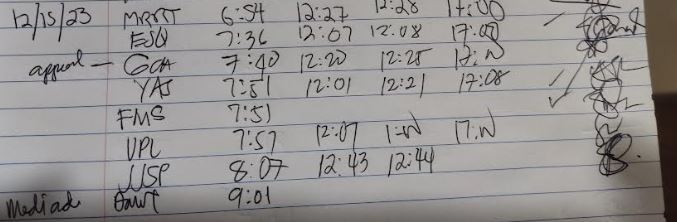 12/15/23 MRRT 6:54 12:27 12:28 17:00
ESQ 7:36 12:07 12:08 17:00
appeal - GCA 7:40 12:20 12:25 17:N
YAS 7:51 12:01 12:21 17:08
FMS 7:51
VPL 7:57 12:07 1:N 17:N
JJSP 8:07 12:43 12:44
9:01